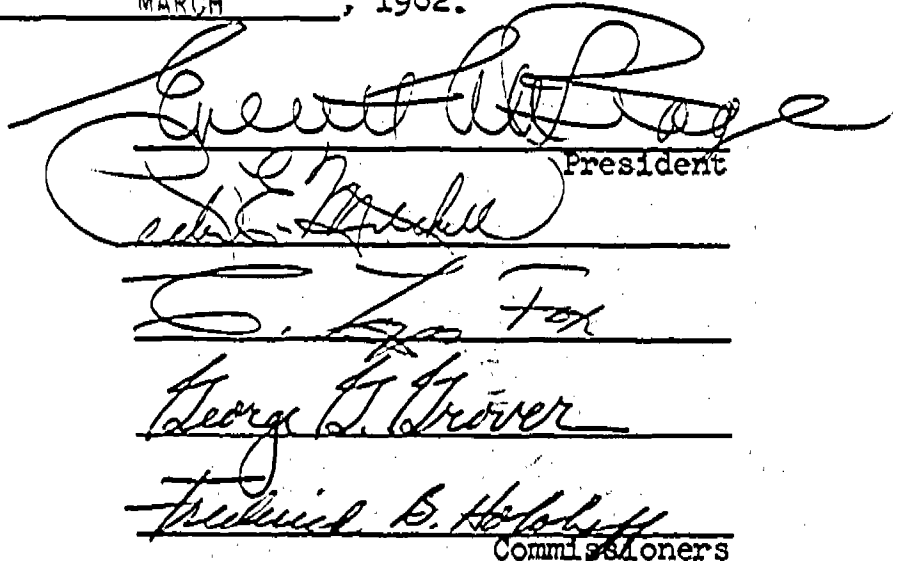 MARCH, 1962.
President
E. Mitchell
C. Fox
George G. Grover
Frederick B. Holoboff
Commissioners